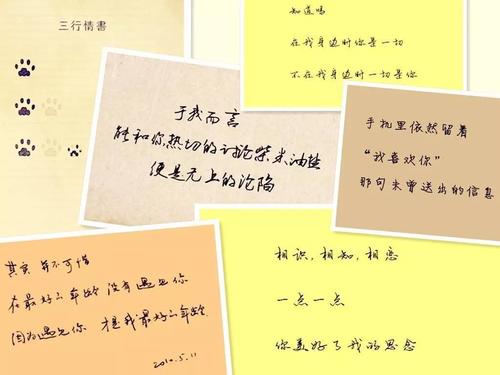 三行情書
知道吗
在我身边时你是一切
不在我身边时一切是你
于我而言
能和你热切的讨论柴米油盐
便是无上的沦陷
手机里依然留着
“我喜欢你”
那句未曾送出的信息
其实 并不可惜
在最好的年龄 没有遇见你
因为遇见你 才是我最好的年龄
2010.5.11
相识，相知，相恋
一点一点
你美好了我的思念